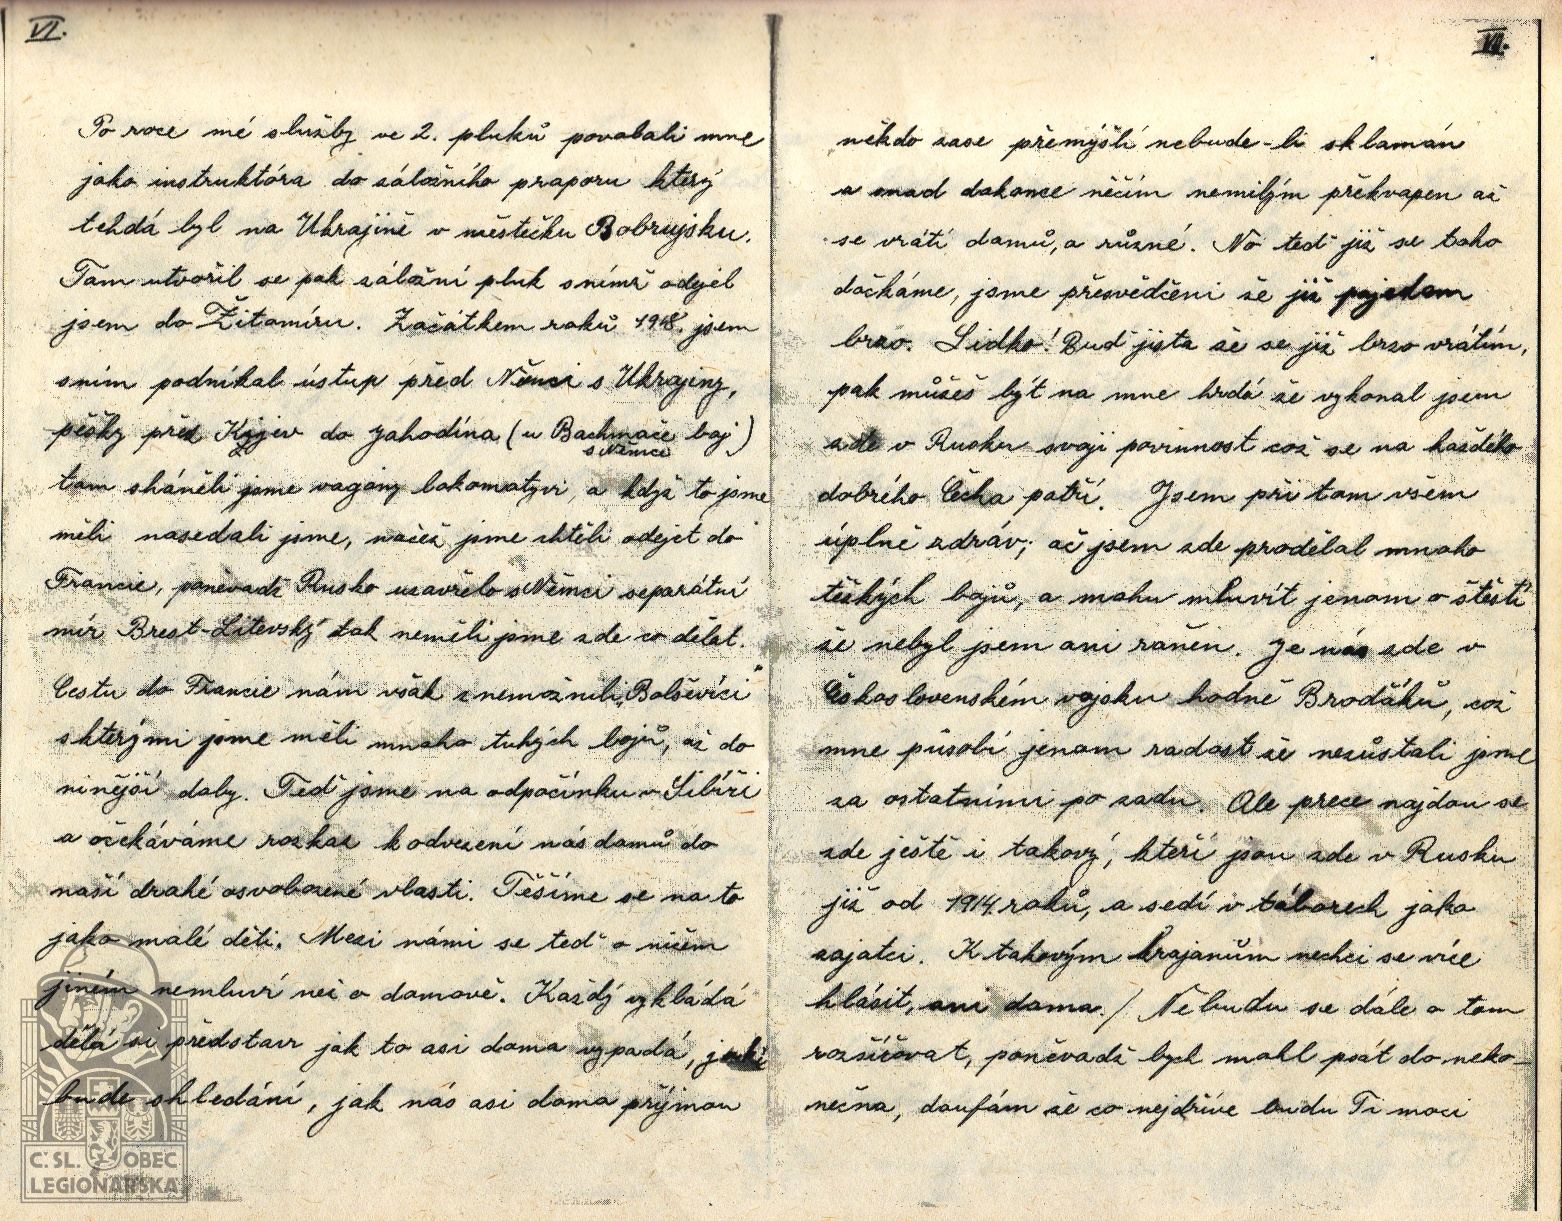 VI.
Po roce mé služby ve 2. pluků povolali mne
jako instruktóra do záložního praporu který
tehdá byl na Ukrajině v městečku Bobrujsku.
Tam utvořil se pak záložní pluk snímž odejel
jsem do Žitomíru. Začátkem roků 1918. jsem
sním podnikal ústup před Němci s Ukrajiny,
pěšky přes Kyjev do Jahodína (u Bachmače boj)
s Němci
tam sháněli jsme vagóny lokomotyvi a když to jsme
měli nasedali jsme, načež jsme chtěli odejet do
Francie, poněvadž Rusko uzavřelo s Němci separátní
mír Brest-Litevský tak neměli jsme zde co dělat.
Cestu do Francie nám však znemožnili „Bolševíci"
skterými jsme měli mnoho tuhých bojů, až do
ninější doby. Teď jsme na odpočinku v Sibíři
a očekáváme rozkaz k odvezení nás domů do
naší drahé osvobozené vlasti. Těšíme se na to
jako malé děti. Mezi námi se teď o ničem
jiném nemluví než o domově. Každý vykládá
dělá si představ jak to asi doma vypadá, jaké
bude shledání, jak nás asi doma príjmou
VII.
někdo zase přemýšlí nebude-li sklamán
a snad dokonce něčím nemilým překvapen až
se vrátí domů, a různé. No teď již se toho
dočkáme, jsme přesvědčeni že již pojedem
brzo. Lidko! Buď jista že se již brzo vrátím,
pak můžeš být na mne hrdá že vykonal jsem
zde v Rusku svoji povinnost což se na každého
dobrého Čecha patří. Jsem při tom všem
úplně zdráv; ač jsem zde prodělal mnoho
těžkých bojů, a mohu mluvit jenom o štěstí
že nebyl jsem ani raněn. Je nás zde v
Československém vojsku hodně Broďáků, což
mne působí jenom radost že nezůstali jsme
za ostatními po zadu. Ale prece najdou se
zde ještě i takový, kteří jsou zde v Rusku
již od 1914 roků, a sedí v táborech jako
zajatci. K takovým krajanům nechci se více
hlásit, ani doma. / Nebudu se dále o tom
rozšiřovat, poněvadž bych mohl psát do neko-
nečna, doufám že co nejdříve budu Ti moci
Č. SL. OBEC
LEGIONÁŘSKÁ